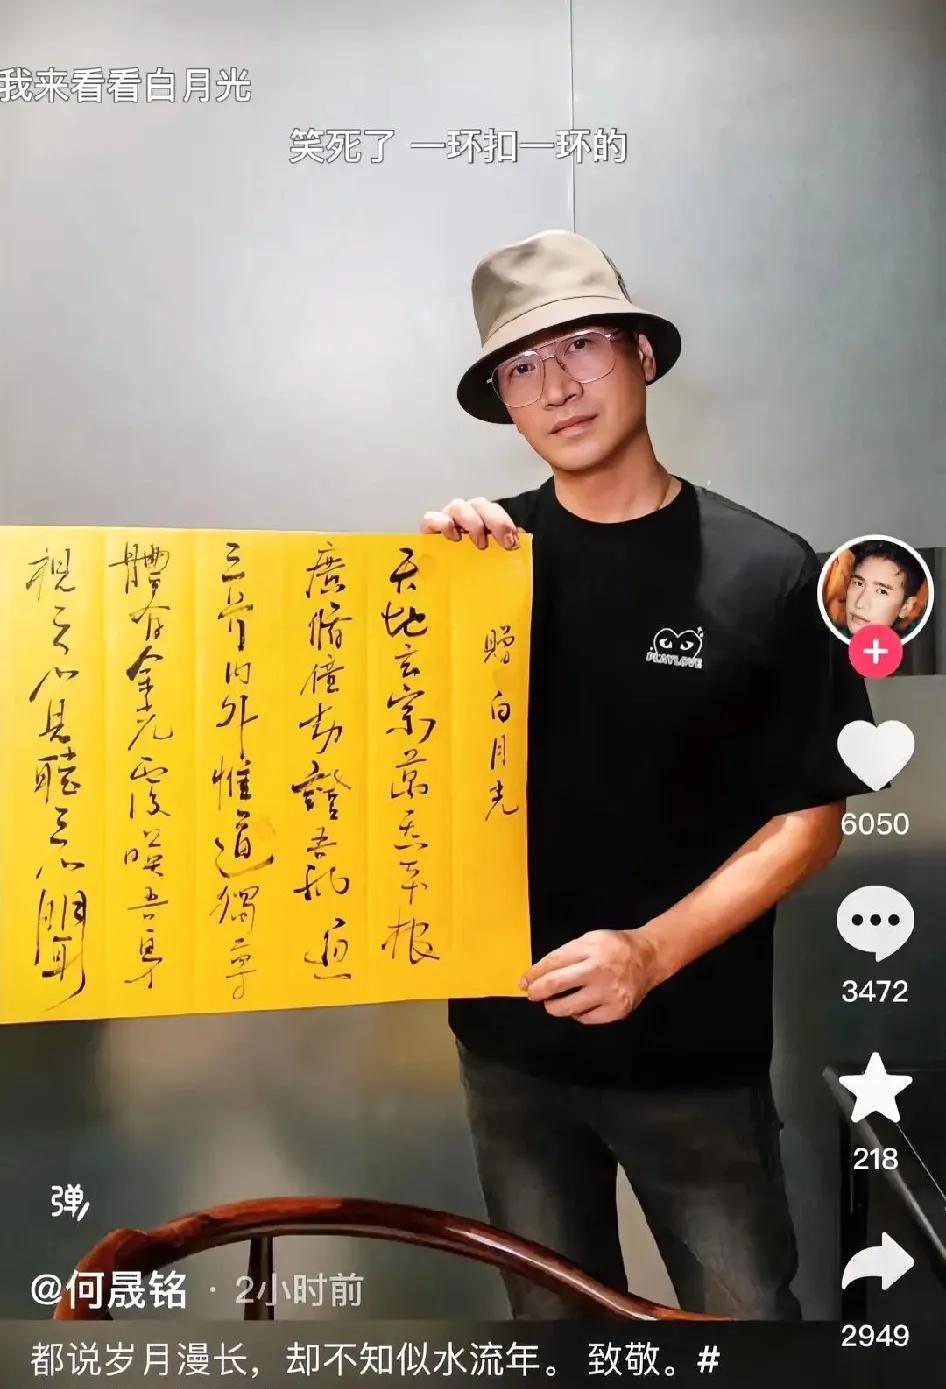 我来看看白月光
笑死了 一环扣一环的
贈 白月光
天地玄宗萬炁本根
廣脩億劫證吾神通
三界内外惟道獨尊
體有金光覆暎吾身
視之不見聽之不聞
PLAYLOVE
6050
3472
218
2949
弹
@何晟铭 · 2小时前
都说岁月漫长，却不知似水流年。 致敬。#